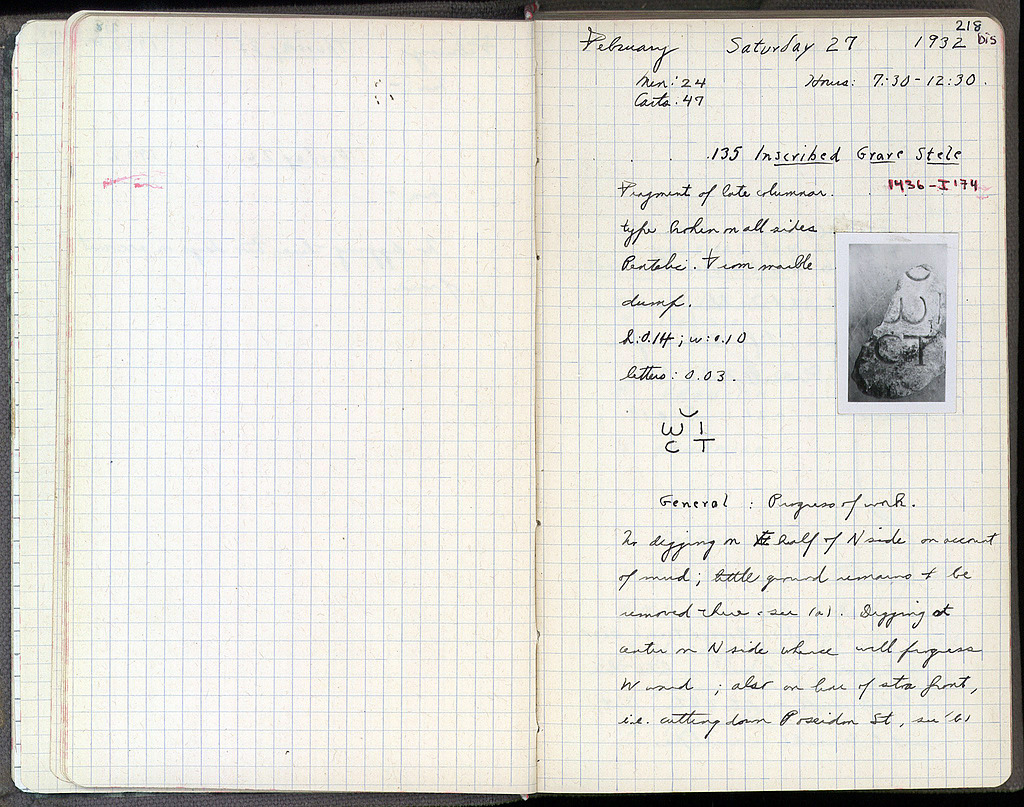 218
bis
February Saturday 27 1932
Men: 24 Hours: 7:30 - 12:30.
Carts. 47
135 Inscribed Grave Stele
1436 - I 174
Fragment of late columnar
type broken on all sides
Pentelic. From marble
dump.
h: 0.14 ; w: 0.10
letters: 0.03.
ω Ι
C T
General : Progress of work.
No digging on half of N side on account
of mud; little ground remains to be
removed there: see (a). Digging at
center on N side whence will progress
W ward ; also on line of stoa front,
i.e. cutting down Poseidon St, see (b)